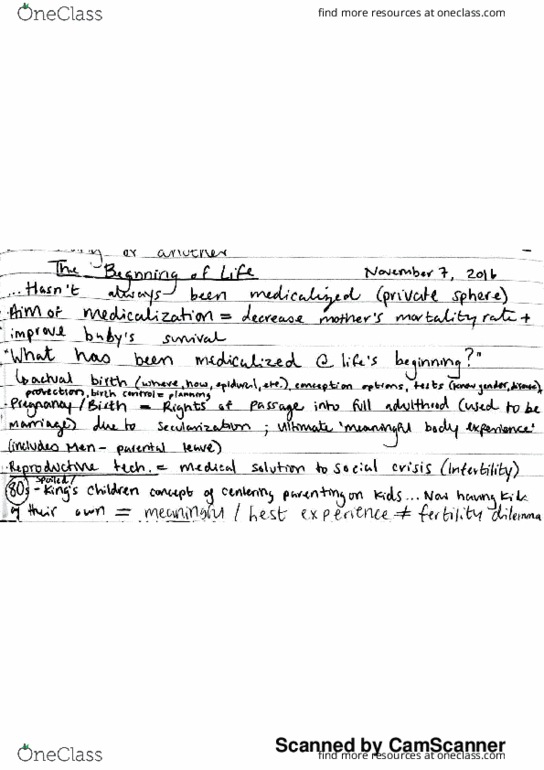 OneClass
find more resources at oneclass.com
or another
The Beginning of Life November 7, 2016
...Hasn't always been medicalized (private sphere)
Aim of medicalization = decrease mother's mortality rate +
improve baby's survival
"What has been medicalized @ life's beginning?"
actual birth (where, how, epidural, etc.), conception options, tests (know gender, disease),
protection, birth control = planning
Pregnancy/Birth = Rights of passage into full adulthood (used to be
marriage) due to secularization; ultimate 'meaningful body experience'
(includes Men - parental leave)
Reproductive tech. = medical solution to social crisis (Infertility)
spoiled/
80s - King's children concept of centering parenting on kids... Now having kids
of their own = meaningful / best experience ≠ fertility dilemma
Scanned by CamScanner
OneClass
find more resources at oneclass.com